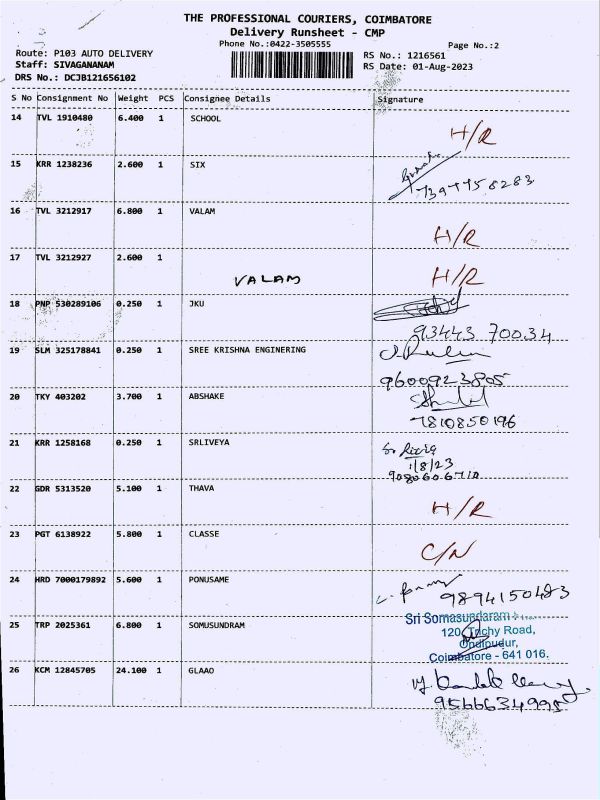 THE PROFESSIONAL COURIERS, COIMBATORE
Delivery Runsheet - CMP
Phone No.:0422-3505555
Page No.:2
Route: P103 AUTO DELIVERY
RS No.: 1216561
Staff: SIVAGANANAM
RS Date: 01-Aug-2023
DRS No.: DCJB121656102
S No Consignment No Weight PCS Consignee Details Signature
14 TVL 1910480 6.400 1 SCHOOL
H/R
15 KRR 1238236 2.600 1 SIX
16 TVL 3212917 6.800 1 VALAM
H/R
17 TVL 3212927 2.600 1
VALAM H/R
18 PNP 530289106 0.250 1 JKU
93443 70034
19 SLM 325178841 0.250 1 SREE KRISHNA ENGINERING
9600923805
20 TKY 403202 3.700 1 ABSHAKE
7810850196
21 KRR 1258168 0.250 1 SRLIVEYA
1/8/23
9080606710
22 GDR 5313520 5.100 1 THAVA
H/R
23 PGT 6138922 5.800 1 CLASSE
C/N
24 HRD 7000179892 5.600 1 PONUSAME
9894150483
25 TRP 2025361 6.800 1 SOMUSUNDRAM
Sri Somasundaram
120, Trichy Road,
Ondipudur,
Coimbatore - 641 016.
26 KCM 12845705 24.100 1 GLAAO
9566634995